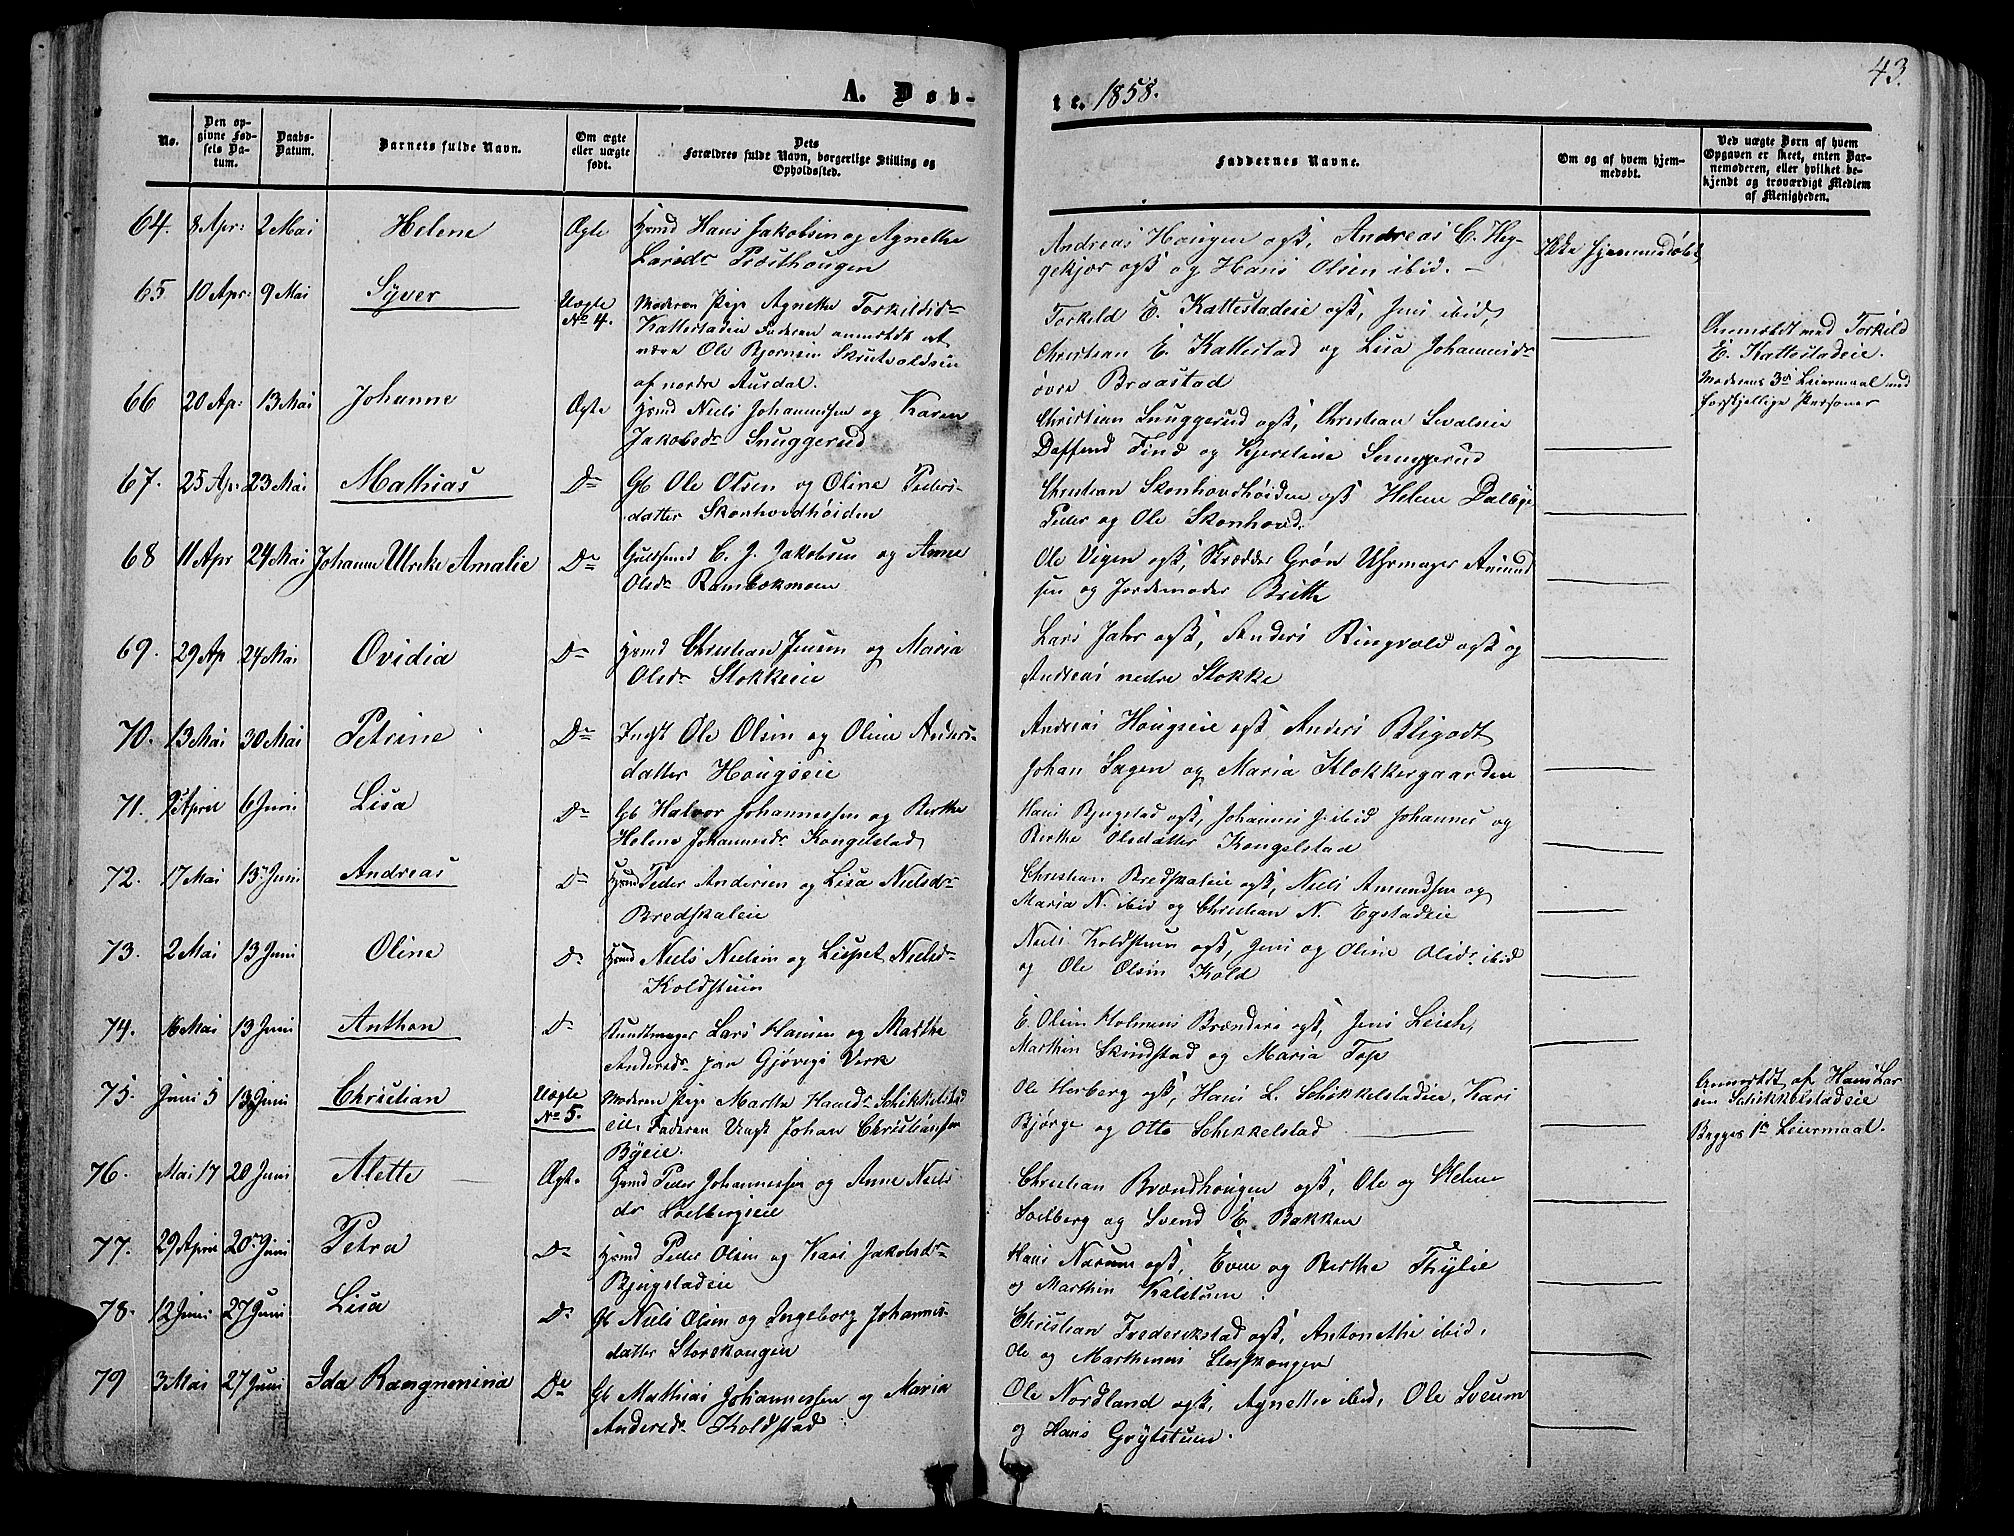 A. Døb-
te. 1858.
43.
No.
Den op-
givne Fød-
sels Da-
tum.
Daabs-
Datum.
Barnets fulde Navn.
Om ægte
eller uægte
født.
Dets
Forældres fulde Navn, borgerlige Stilling og
Opholdssted.
Faddernes Navne.
Om og af hvem hjem-
medøbt.
Ved uægte Børn af hvem
Opgaven er skeet, enten Bar-
nemoderen, eller hvilket be-
kjendt og troværdigt Medlem
af Menigheden.
64. 8 Apr: 2 Mai Helene Ægte Hmd Hans Jakobsen og Agnethe
Larsdr Prosthougen
Andreas Hougen ogst, Andreas C. Heg-
gekjær ogst og Hans Olsen ibid. –
Ikke hjemmedøbt
65. 10 Apr: 9 Mai Syver Uægte
No 4.
Moderen Pige Agnethe Torkildsdr
Kattestadeie Faderen anmeldt at
være Ole Bjørnsen Skrutvoldseie
af nordre Aurdal.
Torkild E. Kattestadeie ogst, Jens ibid,
Christian E. Kattestad og Lisa Johannesdr
øvre Braastad
Anmeldt med Torkild
E. Kattestadeie.
Moderens 3die Leiermaal med
forskjellige Personer
66 20 Ap: 13 Mai Johanne Ægte Hmd Niels Johannessen og Karen
Jakobsdr Snuggerud
Christian Snuggerud ogst, Christian Sevaleie
Daffend Find og Kjerstine Snuggerud
67. 25 Ap: 23 Mai Mathias Do Gb Ole Olsen og Oline Peders-
datter Skonhovdhøiden
Christian Skonhovdhøiden ogst Helene Dalbye
Peder og Ole Skonhovd.
68 11 Apr 24 Mai Johanne Ulrike Amalie Do Guldsmed C. J. Jakobsen og Anne
Olsdr Rambekmoen
Ole Vigen ogst, Skrædder Grøn Uhrmager Amund
sen og Jordemoder Brithe
69. 29 Ap 24 Mai Ovidia Do Hmd Christian Jensen og Maria
Olsdr Stokkeeie
Lars Jahr ogst, Anders Ringvold ogst og
Andreas nedre Stokke
70. 13 Mai 30 Mai Petrine Do Indst Ole Olsen og Oline Anders-
datter Hougseie
Andreas Hougseie ogst Anders Bligodt
Johan Hagen og Maria Klokkergaarden
71. 9 April 6 Juni Lisa Do Gb Halvor Johannessen og Berthe
Helene Johannesdr Kongelstad
Hans Bjugstad ogst, Johannes J. ibid Johannes og
Berthe Olsdatter Kongelstad
72. 17 Mai 13 Juni Andreas Do Hmd Peder Andersen og Lisa Nielsdr
Bredskaleie
Christian Bredskaleie ogst, Niels Amundsen og
Maria N. ibid og Christian N. Egstadeie
73. 2 Mai 13 Juni Oline Do Hmd Niels Nielsen og Lispet Nielsdr
Koldstuen
Niels Koldstuen ogst, Jens og Oline Olsdr ibid
og Ole Olsen Kold
74. 16 Mai 13 Juni Anthon Do Bundtmager Lars Hansen og Marthe
Andersdr paa Gjøvigs Verk
E. Olsen Holmens Brænderi ogst, Jens Leich,
Marthin Skindstad og Maria Top
75. Juni 5 13 Juni Christian Uægte
No 5.
Moderen Pige Marthe Hansdr Schikkelstad
eie. Faderen Ungk Johan Christiansen
Byeie.
Ole Herberg ogst, Hans L. Schikkelstadeie, Kari
Bjørge og Otto Schikkelstad
Anmeldt af Hans Lar
sen Schikkelstadeie
Begges 1ste Leiermaal.
76. Mai 17 20 Juni Alette Ægte Hmd Peder Johannessen og Anne Niels
dr Soelbergseie
Christian Brændhougen ogst, Ole og Helene
Soelberg og Svend E. Bakken
77. 29 April 20 Juni Petra Do Hmd Peder Olsen og Kari Jakobsdr
Bjugstadeie
Hans Narum ogst, Even og Berthe Thylie
og Marthin Kalstuen.
78. 12 Juni 27 Juni Lisa Do Gb Niels Olsen og Ingeborg Johannes-
datter Storskougen
Christian Frederikstad ogst, Antonethe ibid,
Ole og Marthinus Storskougen
79 3 Mai 27 Juni Ida Rangnenina Do Gb Mathias Johannessen og Maria
Andersdr Koldstad
Ole Nordland ogst, Agnethe ibid, Ole Sveum
og Hans Grytstuen.